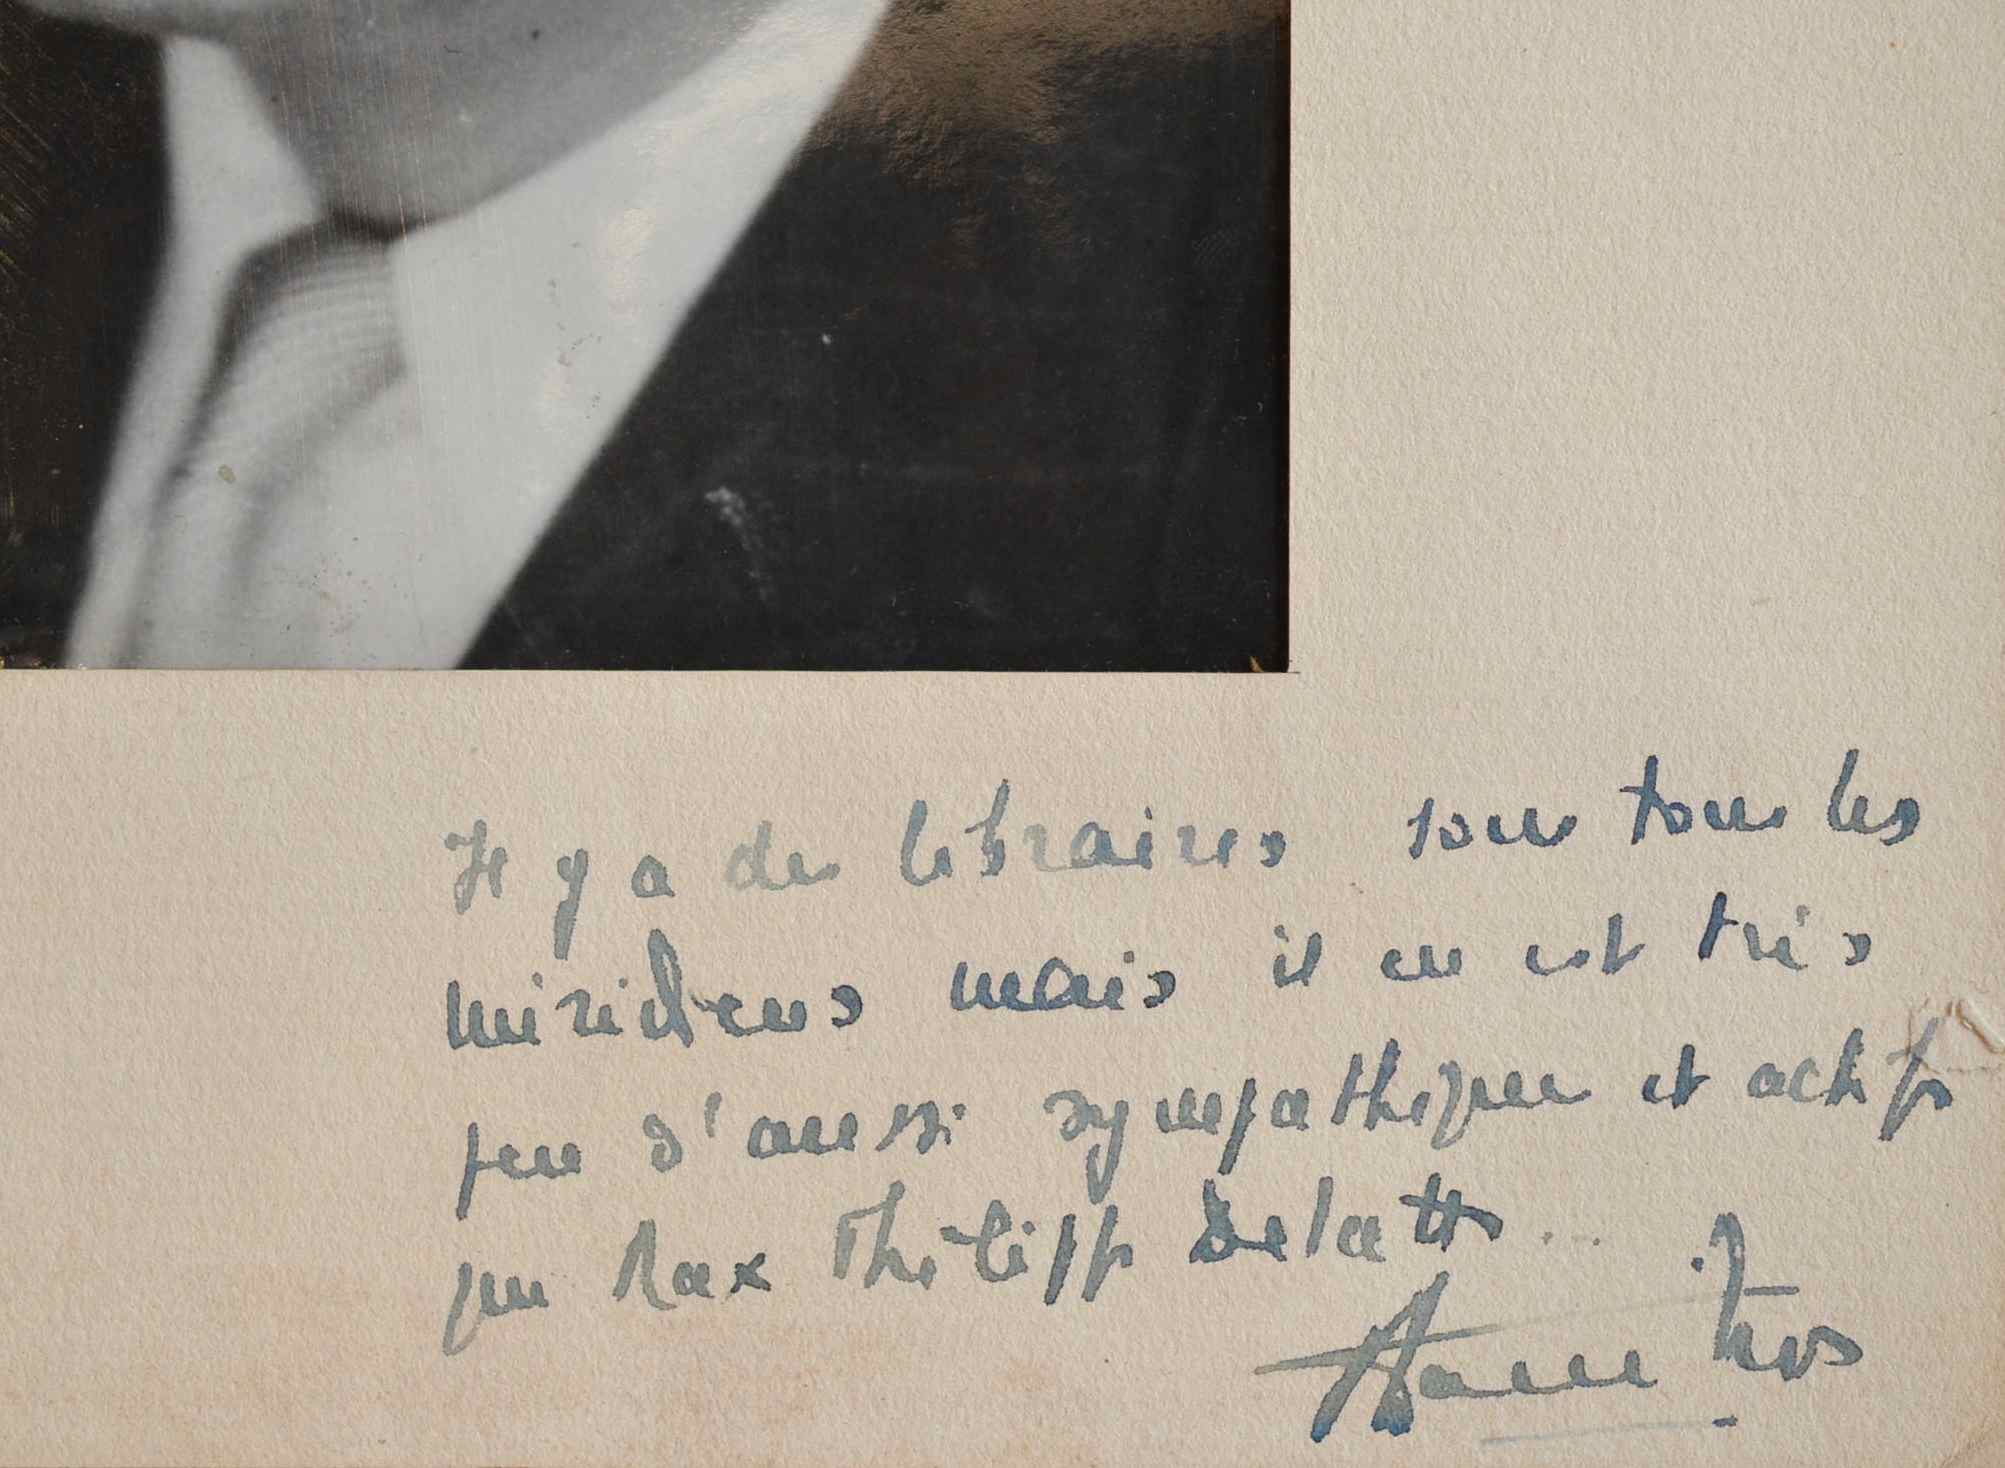 Il y a des libraires sous tous les
méridiens mais il en est très
peu d'aussi sympathiques et actifs
que Max Philippe Delatte...